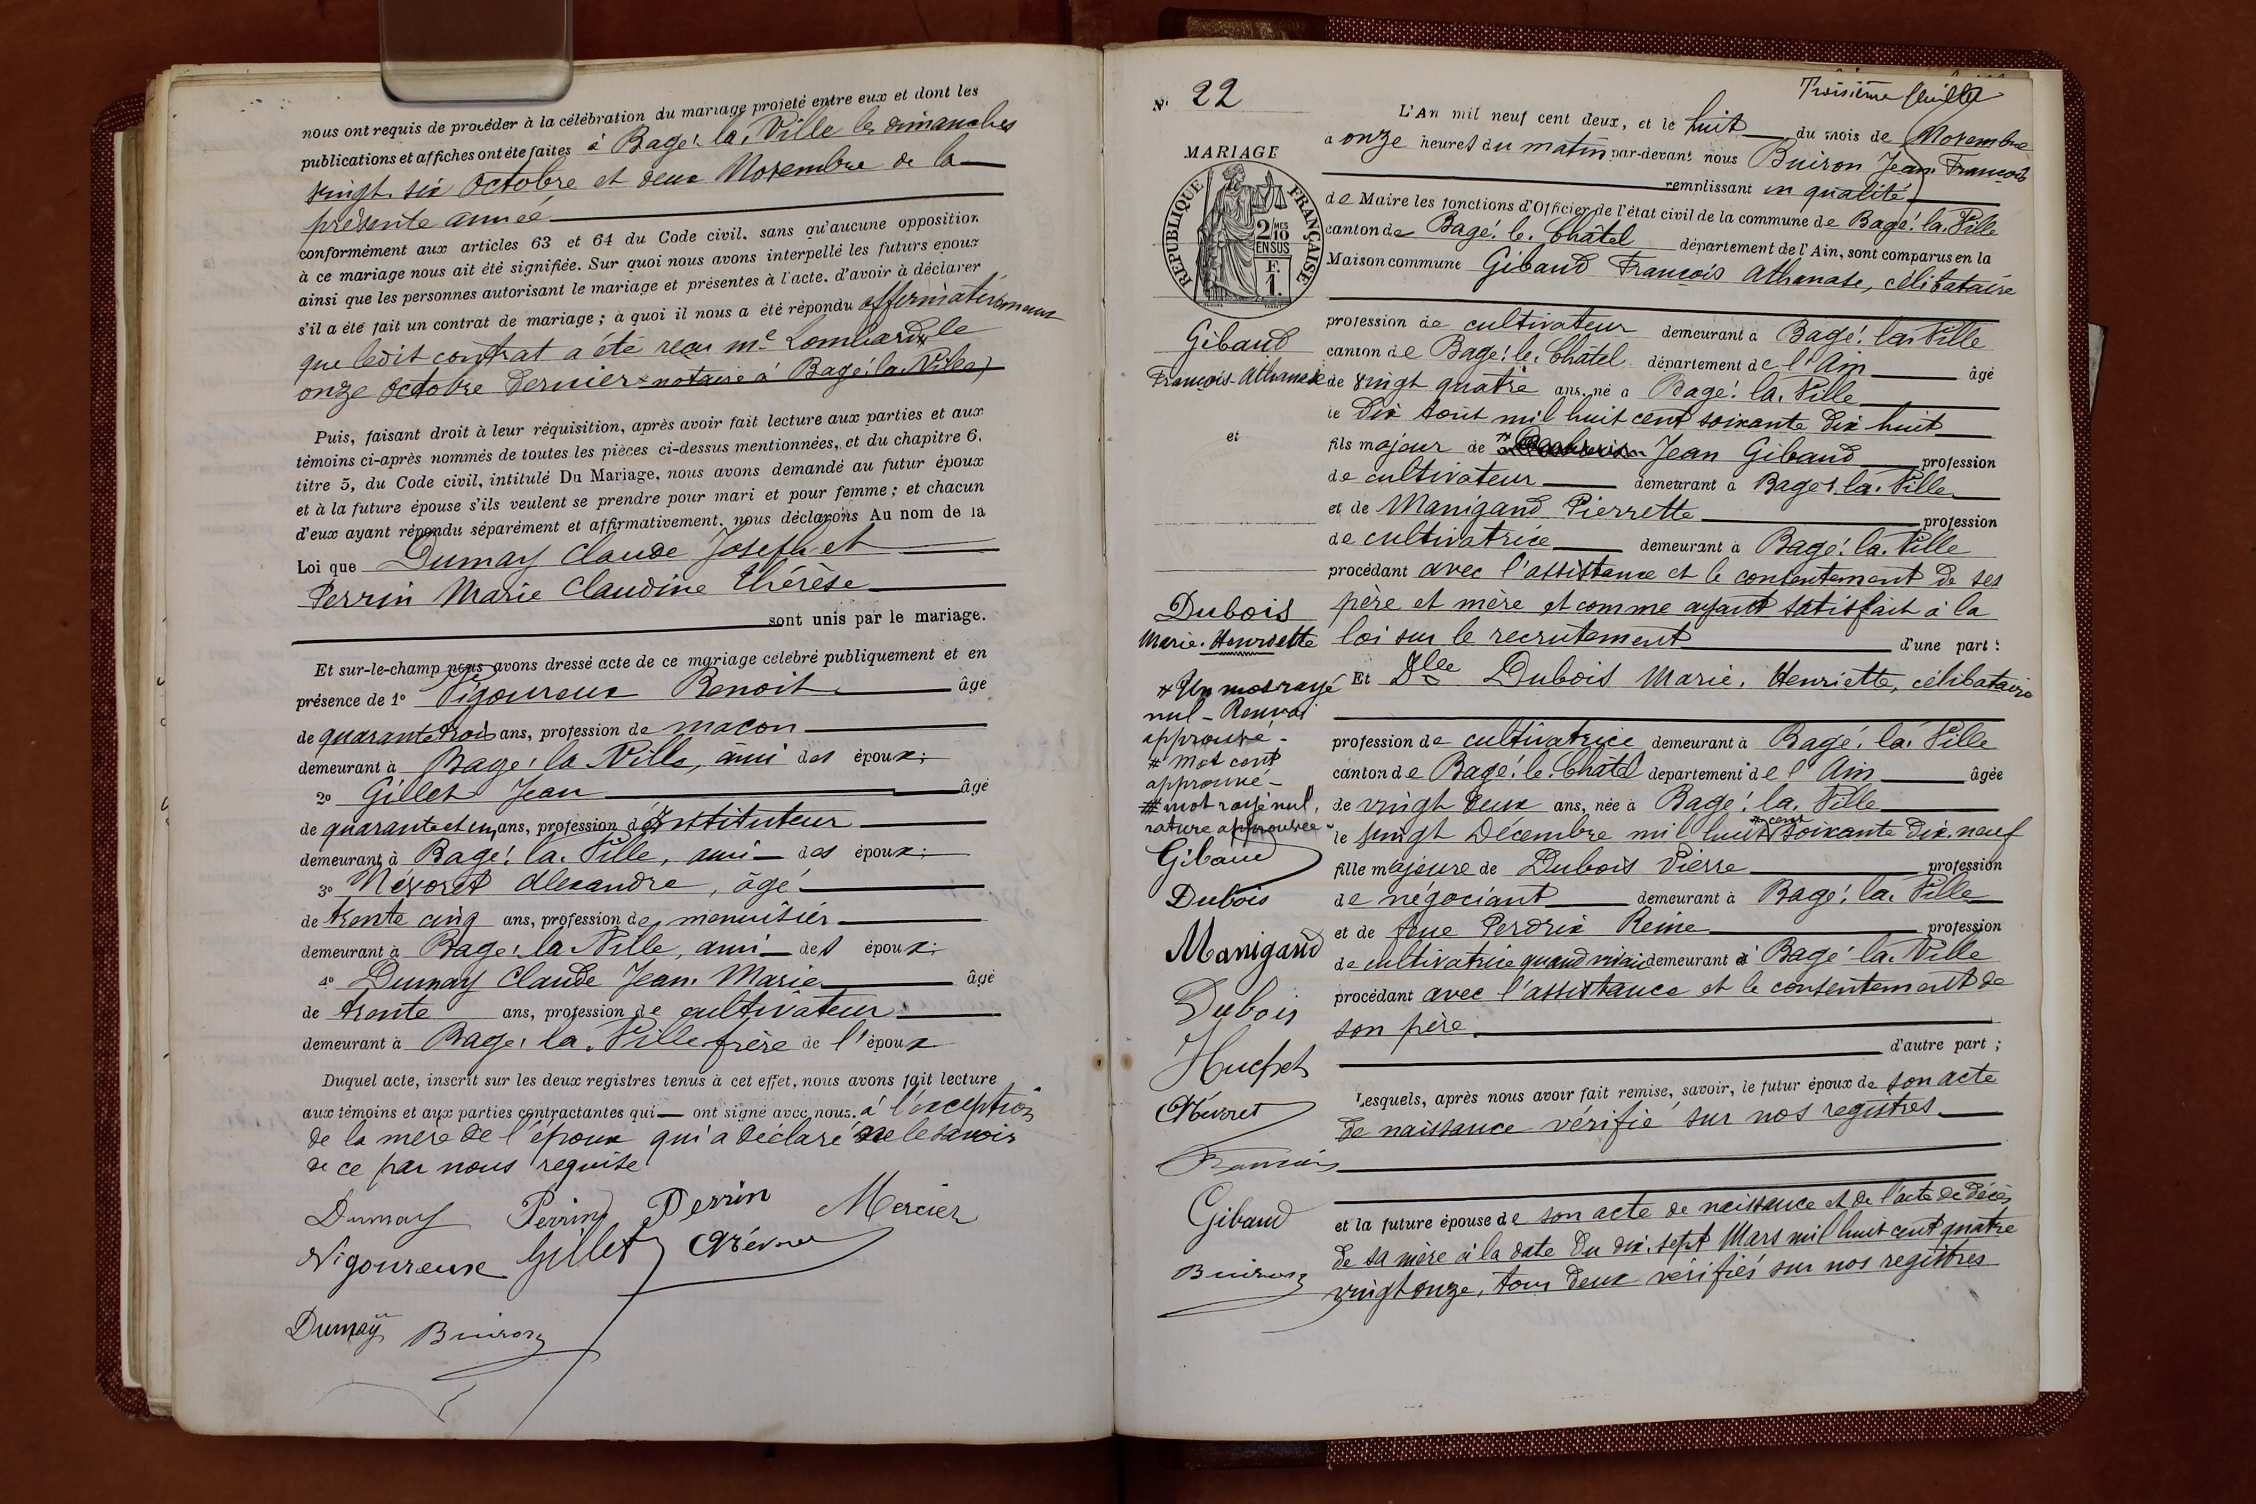 nous ont requis de procéder à la célébration du mariage projeté entre eux et dont les
publications et affiches ont été faites à Bagé-la-Ville les dimanches
vingt-six Octobre et deux Novembre de la
présente année
conformément aux articles 63 et 64 du Code civil, sans qu'aucune opposition
à ce mariage nous ait été signifiée. Sur quoi nous avons interpellé les futurs époux
ainsi que les personnes autorisant le mariage et présentes à l'acte, d'avoir à déclarer
s'il a été fait un contrat de mariage; à quoi il nous a été répondu affirmativement
que ledit contrat a été reçu Me Lombard le
onze Octobre dernier notaire à Bagé-la-Ville
Puis, faisant droit à leur réquisition, après avoir fait lecture aux parties et aux
témoins ci-après nommés de toutes les pièces ci-dessus mentionnées, et du chapitre 6,
titre 5, du Code civil, intitulé Du Mariage, nous avons demandé au futur époux
et à la future épouse s'ils veulent se prendre pour mari et pour femme; et chacun
d'eux ayant répondu séparément et affirmativement, nous déclarons Au nom de la
Loi que Dumay Claude Joseph et
Perrin Marie Claudine Thérèse
sont unis par le mariage.
Et sur-le-champ nous avons dressé acte de ce mariage célébré publiquement et en
présence de 1° Vigoureux Benoit âgé
de quarante trois ans, profession de maçon
demeurant à Bagé-la-Ville, ami des époux;
2° Gillet Jean âgé
de quarante et un ans, profession d'Instituteur
demeurant à Bagé-la-Ville, ami des époux;
3° Névoret Alexandre, âgé
de trente cinq ans, profession de menuisier
demeurant à Bagé-la-Ville, ami des époux;
4° Dumay Claude Jean-Marie âgé
de trente ans, profession de cultivateur
demeurant à Bagé-la-Ville frère de l'époux
Duquel acte, inscrit sur les deux registres tenus à cet effet, nous avons fait lecture
aux témoins et aux parties contractantes qui ont signé avec nous, à l'exception
de la mère de l'époux qui a déclaré ne le savoir
de ce par nous requise
Dumay Perrin Perrin Mercier
Vigoureux Gillet
Dumay Buiron
Troisième feuillet
N° 22
MARIAGE
RÉPUBLIQUE FRANÇAISE
2 MES
10
EN SUS
F.
1.
L'An mil neuf cent deux, et le huit du mois de Novembre
à onze heures du matin par-devant nous Buiron Jean François
remplissant en qualité
de Maire les fonctions d'Officier de l'état civil de la commune de Bagé-la-Ville
canton de Bagé-le-Châtel département de l'Ain, sont comparus en la
Maison commune Gibaud François Athanase, célibataire
profession de cultivateur demeurant à Bagé-la-Ville
canton de Bagé-le-Châtel département de l'Ain âgé
de vingt quatre ans, né à Bagé-la-Ville
le dix Août mil huit cent soixante dix huit
fils majeur de Jean Gibaud profession
de cultivateur demeurant à Bagé-la-Ville
et de Manigand Pierrette profession
de cultivatrice demeurant à Bagé-la-Ville
procédant avec l'assistance et le consentement de ses
père et mère et comme ayant satisfait à la
loi sur le recrutement d'une part;
Et Dlle Dubois Marie-Henriette, célibataire
profession de cultivatrice demeurant à Bagé-la-Ville
canton de Bagé-le-Châtel département de l'Ain âgée
de vingt deux ans, née à Bagé-la-Ville
le vingt Décembre mil huit cent soixante dix-neuf
fille majeure de Dubois Pierre profession
de négociant demeurant à Bagé-la-Ville
et de feue Perdrix Reine profession
de cultivatrice quand vivait demeurant à Bagé-la-Ville
procédant avec l'assistance et le consentement de
son père
d'autre part;
Lesquels, après nous avoir fait remise, savoir, le futur époux de son acte
de naissance vérifié sur nos registres
et la future épouse de son acte de naissance et de l'acte de décès
de sa mère à la date du dix-sept Mars mil huit cent quatre
vingt onze, tous deux vérifiés sur nos registres
Gibaud
François-Athanase
et
Dubois
Marie-Henriette
Un mot rayé
nul - Renvoi
approuvé -
# mot cent
approuvé -
# mot rayé nul,
rature approuvée
Gibaud
Dubois
Manigand
Dubois
Huchet
François
Gibaud
Buiron